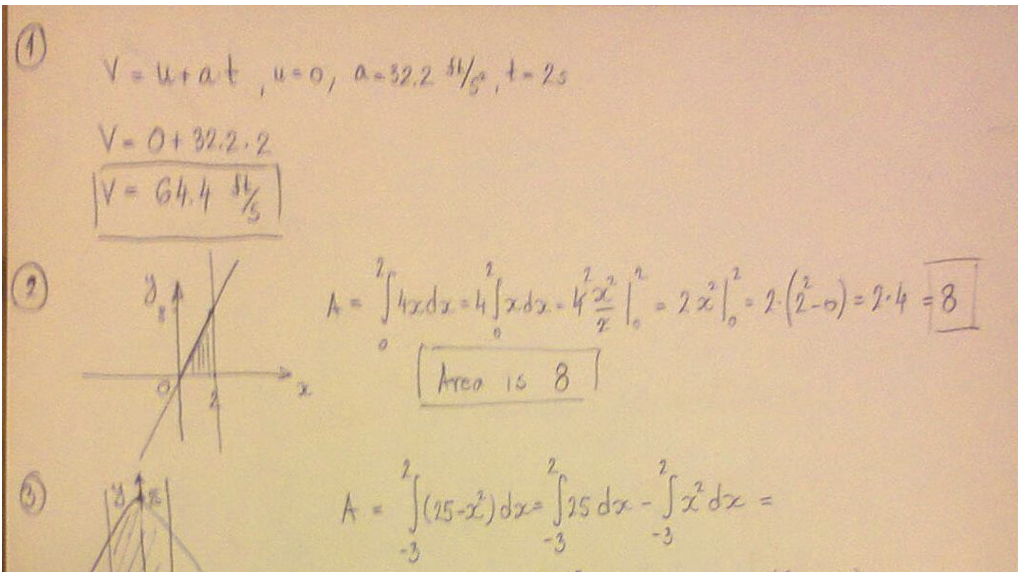 1
V = u+a·t , u=0, a=32.2 ft/s², t=2s
V = 0+32.2·2
V = 64.4 ft/s
2
y
8
0
2
x
A = ∫₀² 4x dx = 4 ∫₀² x dx = 4 x²/2 |₀² = 2x² |₀² = 2·(2²-0) = 2·4 = 8
Area is 8
3
y
A = ∫₋₃² (25-x²) dx = ∫₋₃² 25 dx - ∫₋₃² x² dx =